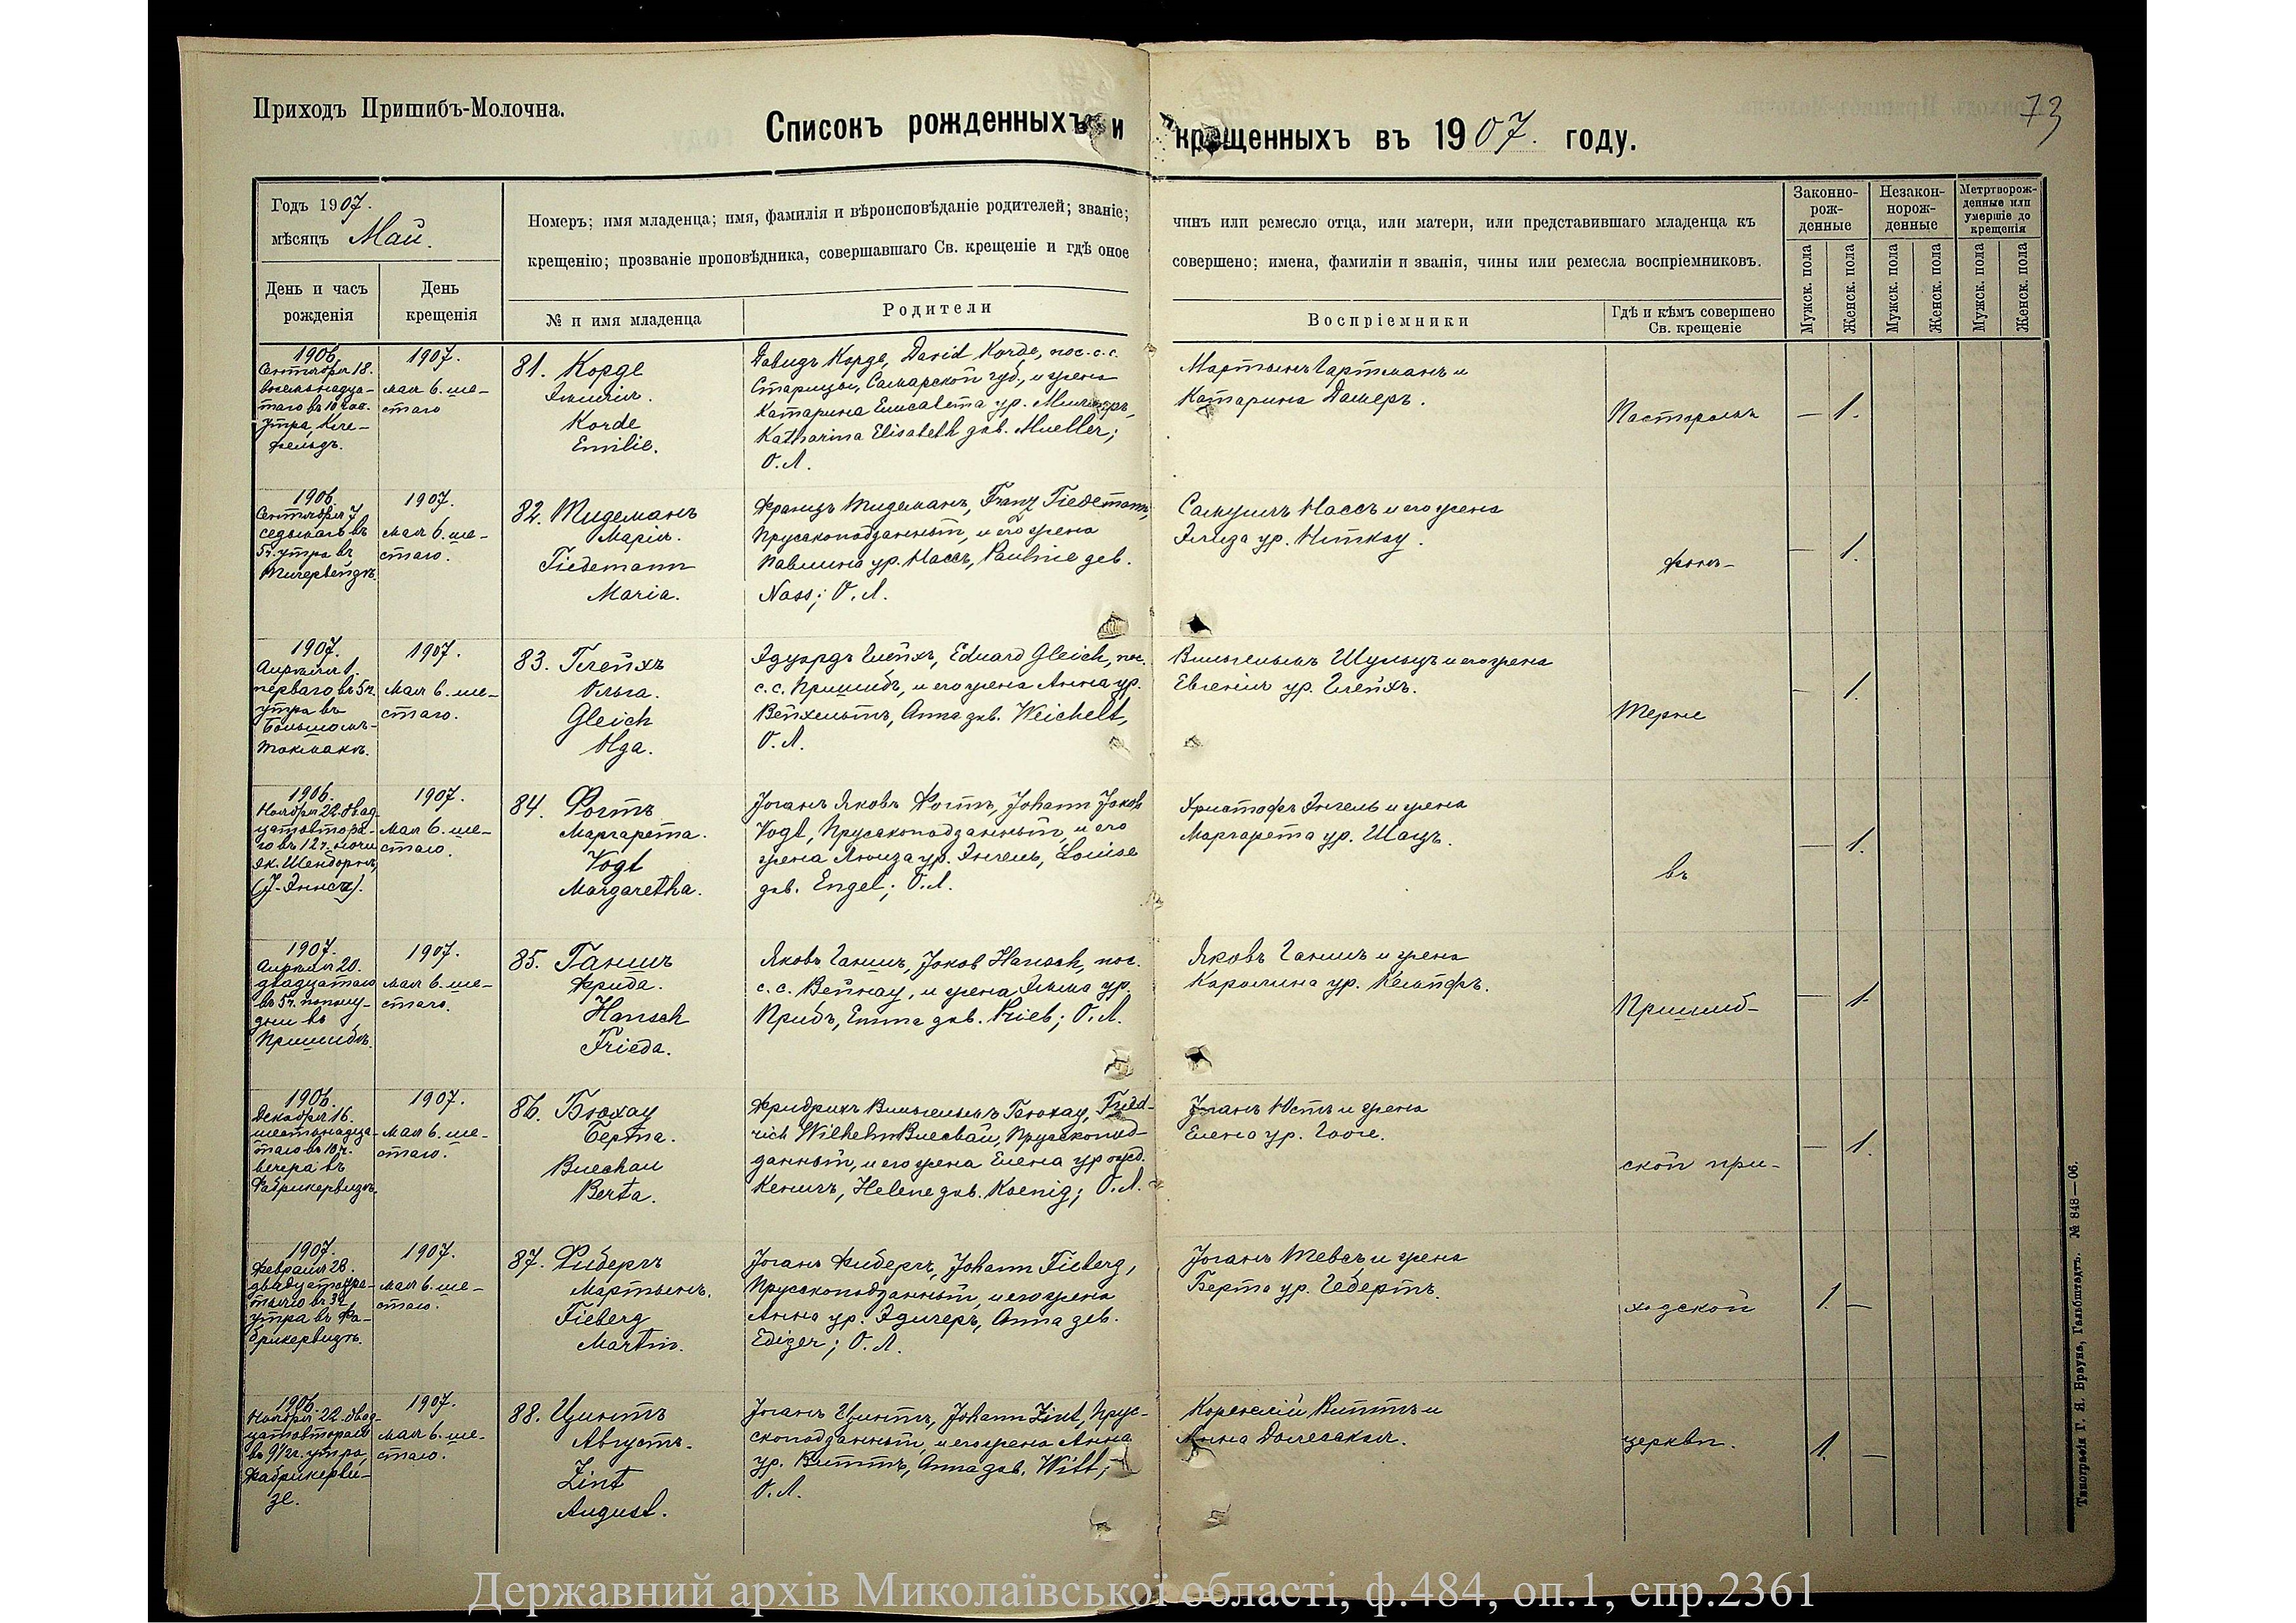 Приходъ Пришибъ-Молочна.
73
Списокъ рожденныхъ и крещенныхъ въ 1907. году.
Годъ 1907.
мѣсяцъ Май.
День и часъ рожденія
День крещенія
Номеръ; имя младенца; имя, фамилія и вѣроисповѣданіе родителей; званіе;
крещенію; прозваніе проповѣдника, совершавшаго Св. крещеніе и гдѣ оное
№ и имя младенца
Родители
чинъ или ремесло отца, или матери, или представившаго младенца къ
совершено; имена, фамиліи и званія, чины или ремесла воспріемниковъ.
Воспріемники
Гдѣ и кѣмъ совершено
Св. крещеніе
Законно-
рож-
денные
Незакон-
норож-
денные
Метртворож-
денные или
умершіе до
крещенія
Мужск. пола
Женск. пола
Мужск. пола
Женск. пола
Мужск. пола
Женск. пола
1906.
Сентября 18.
восемьнадца-
таго въ 10 час.
утра,
фельдъ.
1907.
мая 6. ше-
стаго
81. Корде
Эмилія.
Korde
Emilie.
Давидъ Корде, David Korde, пос. с. с.
Старицы, Самарской губ., и жена
Катарина Елисавета ур. Миллеръ,
Katharina Elisabeth geb. Mueller;
О. Л.
Мартынъ Гартманъ и
Катарина Дашеръ.
Пасторомъ
— 1.
1906.
Сентября 7
седьмаго въ
5 ч. утра въ
Тигервейдѣ.
1907.
Мая 6. ше-
стаго.
82. Тидеманъ
Марія.
Tiedemann
Maria.
Францъ Тидеманъ, Franz Tiedemann,
Прусскоподданный, и его жена
Павлина ур. Нассъ, Pauline geb.
Nass; О. Л.
Самуилъ Нассъ и его жена
Элиза ур. Ниткау.
фонъ-
— 1.
1907.
Апрѣля 1.
перваго въ 5 ч.
утра въ
Большомъ-
Токмакѣ.
1907.
Мая 6. ше-
стаго.
83. Глейхъ
Ольга.
Gleich
Olga.
Эдуардъ Глейхъ, Eduard Gleich, пос.
с. с. Пришибъ, и его жена Анна ур.
Вейхельтъ, Anna geb. Weichelt,
О. Л.
Вильгельмъ Шульцъ и его жена
Евгенія ур. Глейхъ.
Терне
— 1.
1906.
Ноября 22. двад-
цатьвтора-
го въ 12 ч. ночи
эк. Шендорнъ,
1907.
Мая 6. ше-
стаго.
84. Фогтъ
Маргарета.
Vogt
Margaretha.
Іоганъ Яковъ Фогтъ, Johann Jakob
Vogt, Прусскоподданный, и его
жена Луиза ур. Энгель, Louise
geb. Engel; О. Л.
Христофъ Энгель и жена
Маргарета ур. Шацъ.
въ
— 1.
1907.
Апрѣля 20.
двадцатаго
въ 5 ч. пополу-
дни въ
Пришибѣ.
1907.
мая 6. ше-
стаго.
85. Ганшъ
Фрида.
Hansch
Frieda.
Яковъ Ганшъ, Jakob Hansch, пос.
с. с. Вейнау, и жена Эмма ур.
Прибъ, Emma geb. Prieb; О. Л.
Яковъ Ганшъ и жена
Каролина ур. Кемпфъ.
Пришиб-
— 1.
1906.
Декабря 16.
шестьнадца-
таго въ 10 ч.
вечера въ
Фабрикервизѣ.
1907.
Мая 6. ше-
стаго.
86. Бюхау
Берта.
Buechau
Berta.
Фридрихъ Вильгельмъ Бюхау, Fried-
rich Wilhelm Buechau, Прусскопод-
данный, и его жена Елена урожд.
Кенигъ, Helene geb. Koenig; О. Л.
Іоганъ Юстъ и жена
Елена ур. Гооге.
ской при-
— 1.
1907.
Февраля 28.
утра въ Фа-
брикервизѣ.
1907.
мая 6. ше-
стаго.
87. Фибергъ
Мартынъ.
Fieberg
Martin.
Іоганъ Фибергъ, Johann Fieberg,
Прусскоподданный, и его жена
Анна ур. Эдигеръ, Anna geb.
Ediger; О. Л.
Іоганъ Тевсъ и жена
Берта ур. Гебертъ.
ходской
1. —
1906.
Ноября 22. двад-
цатьвтораго
въ 9½ ч. утра,
Фабрикерви-
зе.
1907.
мая 6. ше-
стаго.
88. Цинтъ
Августъ.
Zint
August.
Іоганъ Цинтъ, Johann Zint, Прус-
скоподданный, и его жена Анна
ур. Виттъ, Anna geb. Witt;
О. Л.
Корнелій Виттъ и
Анна Долезская.
церкви.
1. —
Типографія Г. Я. Брауна, Гальбштадтъ. № 848—06.
Державний архів Миколаївської області, ф.484, оп.1, спр.2361